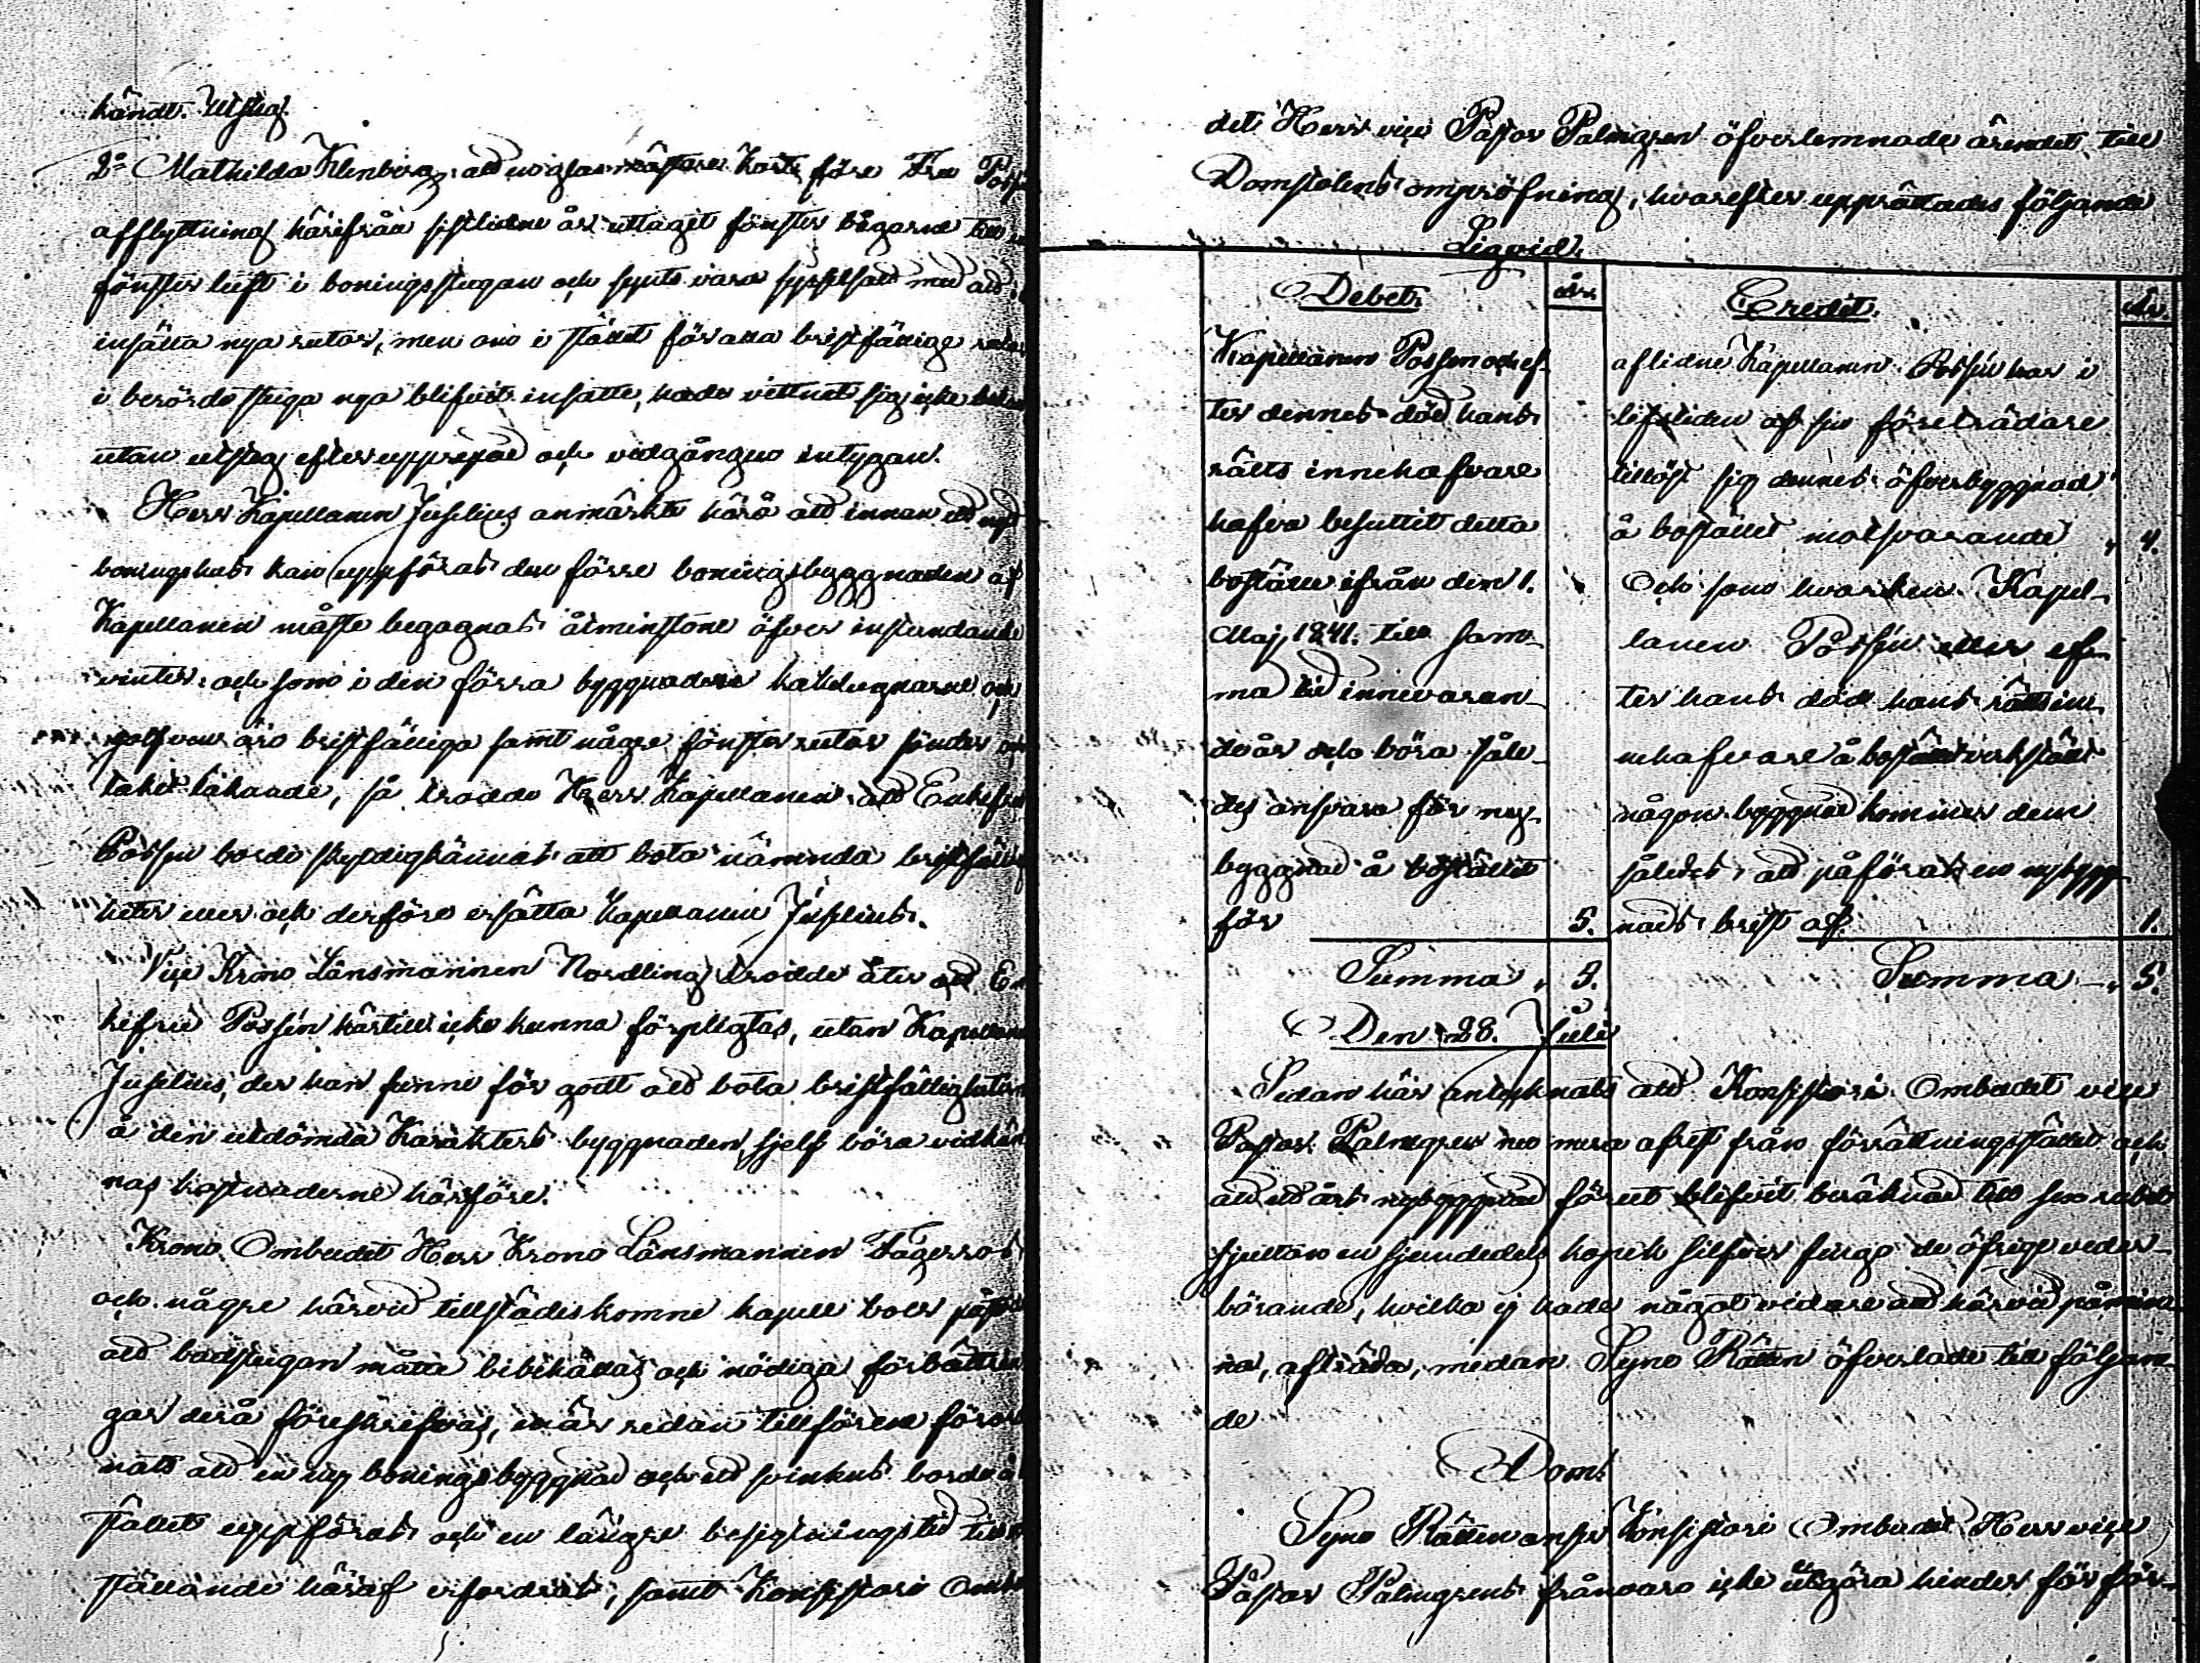 händt. Utsteg.
2o Mathilda Klenberg, att en glasmästare kort före Fru Poss
afflyttning härifrån sistlidne år uttaget fönster bågarne till
fönster luft i boningsstugan och synts vara sysselsatt med att
insätta nya rutor, men om i stället för alla bristfällige
i berörde stuga nya blifvit insatte, hade vittnet sig icke
utan utsteg efter upprepad och vedgången intygan.
Herr Kapellanen Juselius anmärkte härå att innan ett nytt
boningshus han uppföras den förre boningsbyggnaden af
Kapellanen måste begagnas åtminstone öfver instundande
vinter och som i den förra byggnaden kakelugnarne och
golfven äro bristfälliga samt någre fönster rutor sönder och
taket läkande, så trodde Herr Kapellanen att Enkefru
Possen borde skyldigkännas att bota nämnda bristfällig
heter eller och derföre ersätta Kapellanen Juselius.
Vice Krono Länsmannen Nordling trodde åter att En
kefru Possén härtill icke kunna förpligtas, utan Kapellanen
Juselius, der han funne för godt att bota bristfälligheterne
å den utdömda Karakters byggnaden, sjelf böra vidkän
nas kostnaderne härföre.
Krono Ombudet Herr Krono Länsmannen Fagerros
och någre härvid tillstädeskomne kapell boer
att badstugan måtte bibehållas och nödiga förbättrin
gar derå föreskrifvas, enär redan tillförene
nats att en ny boningsbyggnad och ett svinhus borde å
stället uppföras och en längre besigtningstid till
ställande häraf erfordras, samt Konsistori Ombu
det Herr vice Pastor Palmgren öfverlemnade ärendet till
Domstolens ompröfning, hvarefter upprättades följande
Liqvid.
Debet. år. Credit. År.
Kapellanen Possen och ef-
ter dennes död hans
rätts innehafvare
hafva besuttit detta
boställe ifrån den 1.
Maj 1841. till sam-
ma tid innevaran-
de år och böra såle-
des ansvara för ny-
byggnad å bostället
för 5.
Summa, 5.
aflidne Kapellanen Possén har i
lifstiden af sin företrädare
tillöst sig dennes öfverbyggnad
å bostället motsvarande " 4.
Och som hvarken Kapel-
lanen Possén eller ef-
ter hans död hans rätts in-
nehafvare å bostället verkställt
någon byggnad kommer dem
således att påföras en nybygg-
nads brist af 1.
Summa — " 5.
Den 28. Juli
Sedan här antecknats att Konsistori Ombudet vice
Pastor Palmgren nu mera afrest från förrättningsstället och
att ett års nybyggnad förut blifvit beräknad till fem rubel
sjutton en sjundedels kopek silfver fingo de öfrige veder-
börande, hvilka ej hade något vidare att härvid påmin-
na, afträda, medan Syne Rätten öfverlade till följan-
de
Dom:
Syne Rätten anser Konsistori Ombudet Herr vice
Pastor Palmgrens frånvaro icke utgöra hinder för för-